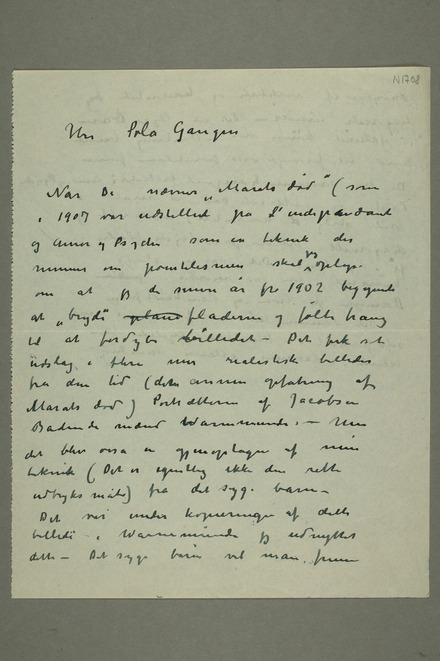 N 1708
Hrr Pola Gauguin
Når De nævner „Marats død" (som
i 1907 var udstillet på L'independant
og Amor og Psyche som en teknik der
minner om pointelismen skal jeg oplyse
om at jeg de senere år fra 1902 begynte
at „bryde plane fladerne og følte trang
til at fordybe billedet – Det fik sit
udslag i flere mer realistiske billeder
fra den tid (den annen opfatning af
Marats død) Portrætterne af Jacobsen
Badende mænd Warnemünde. – Men
det blev også en gjenoptagen af min
teknik (Det er egentlig ikke den rette
udtryks måde) fra det syge barn –
Det var under kopieringen af dette
billede i Warnemünde jeg udnyttet
dette – Det syge barn vil man finne